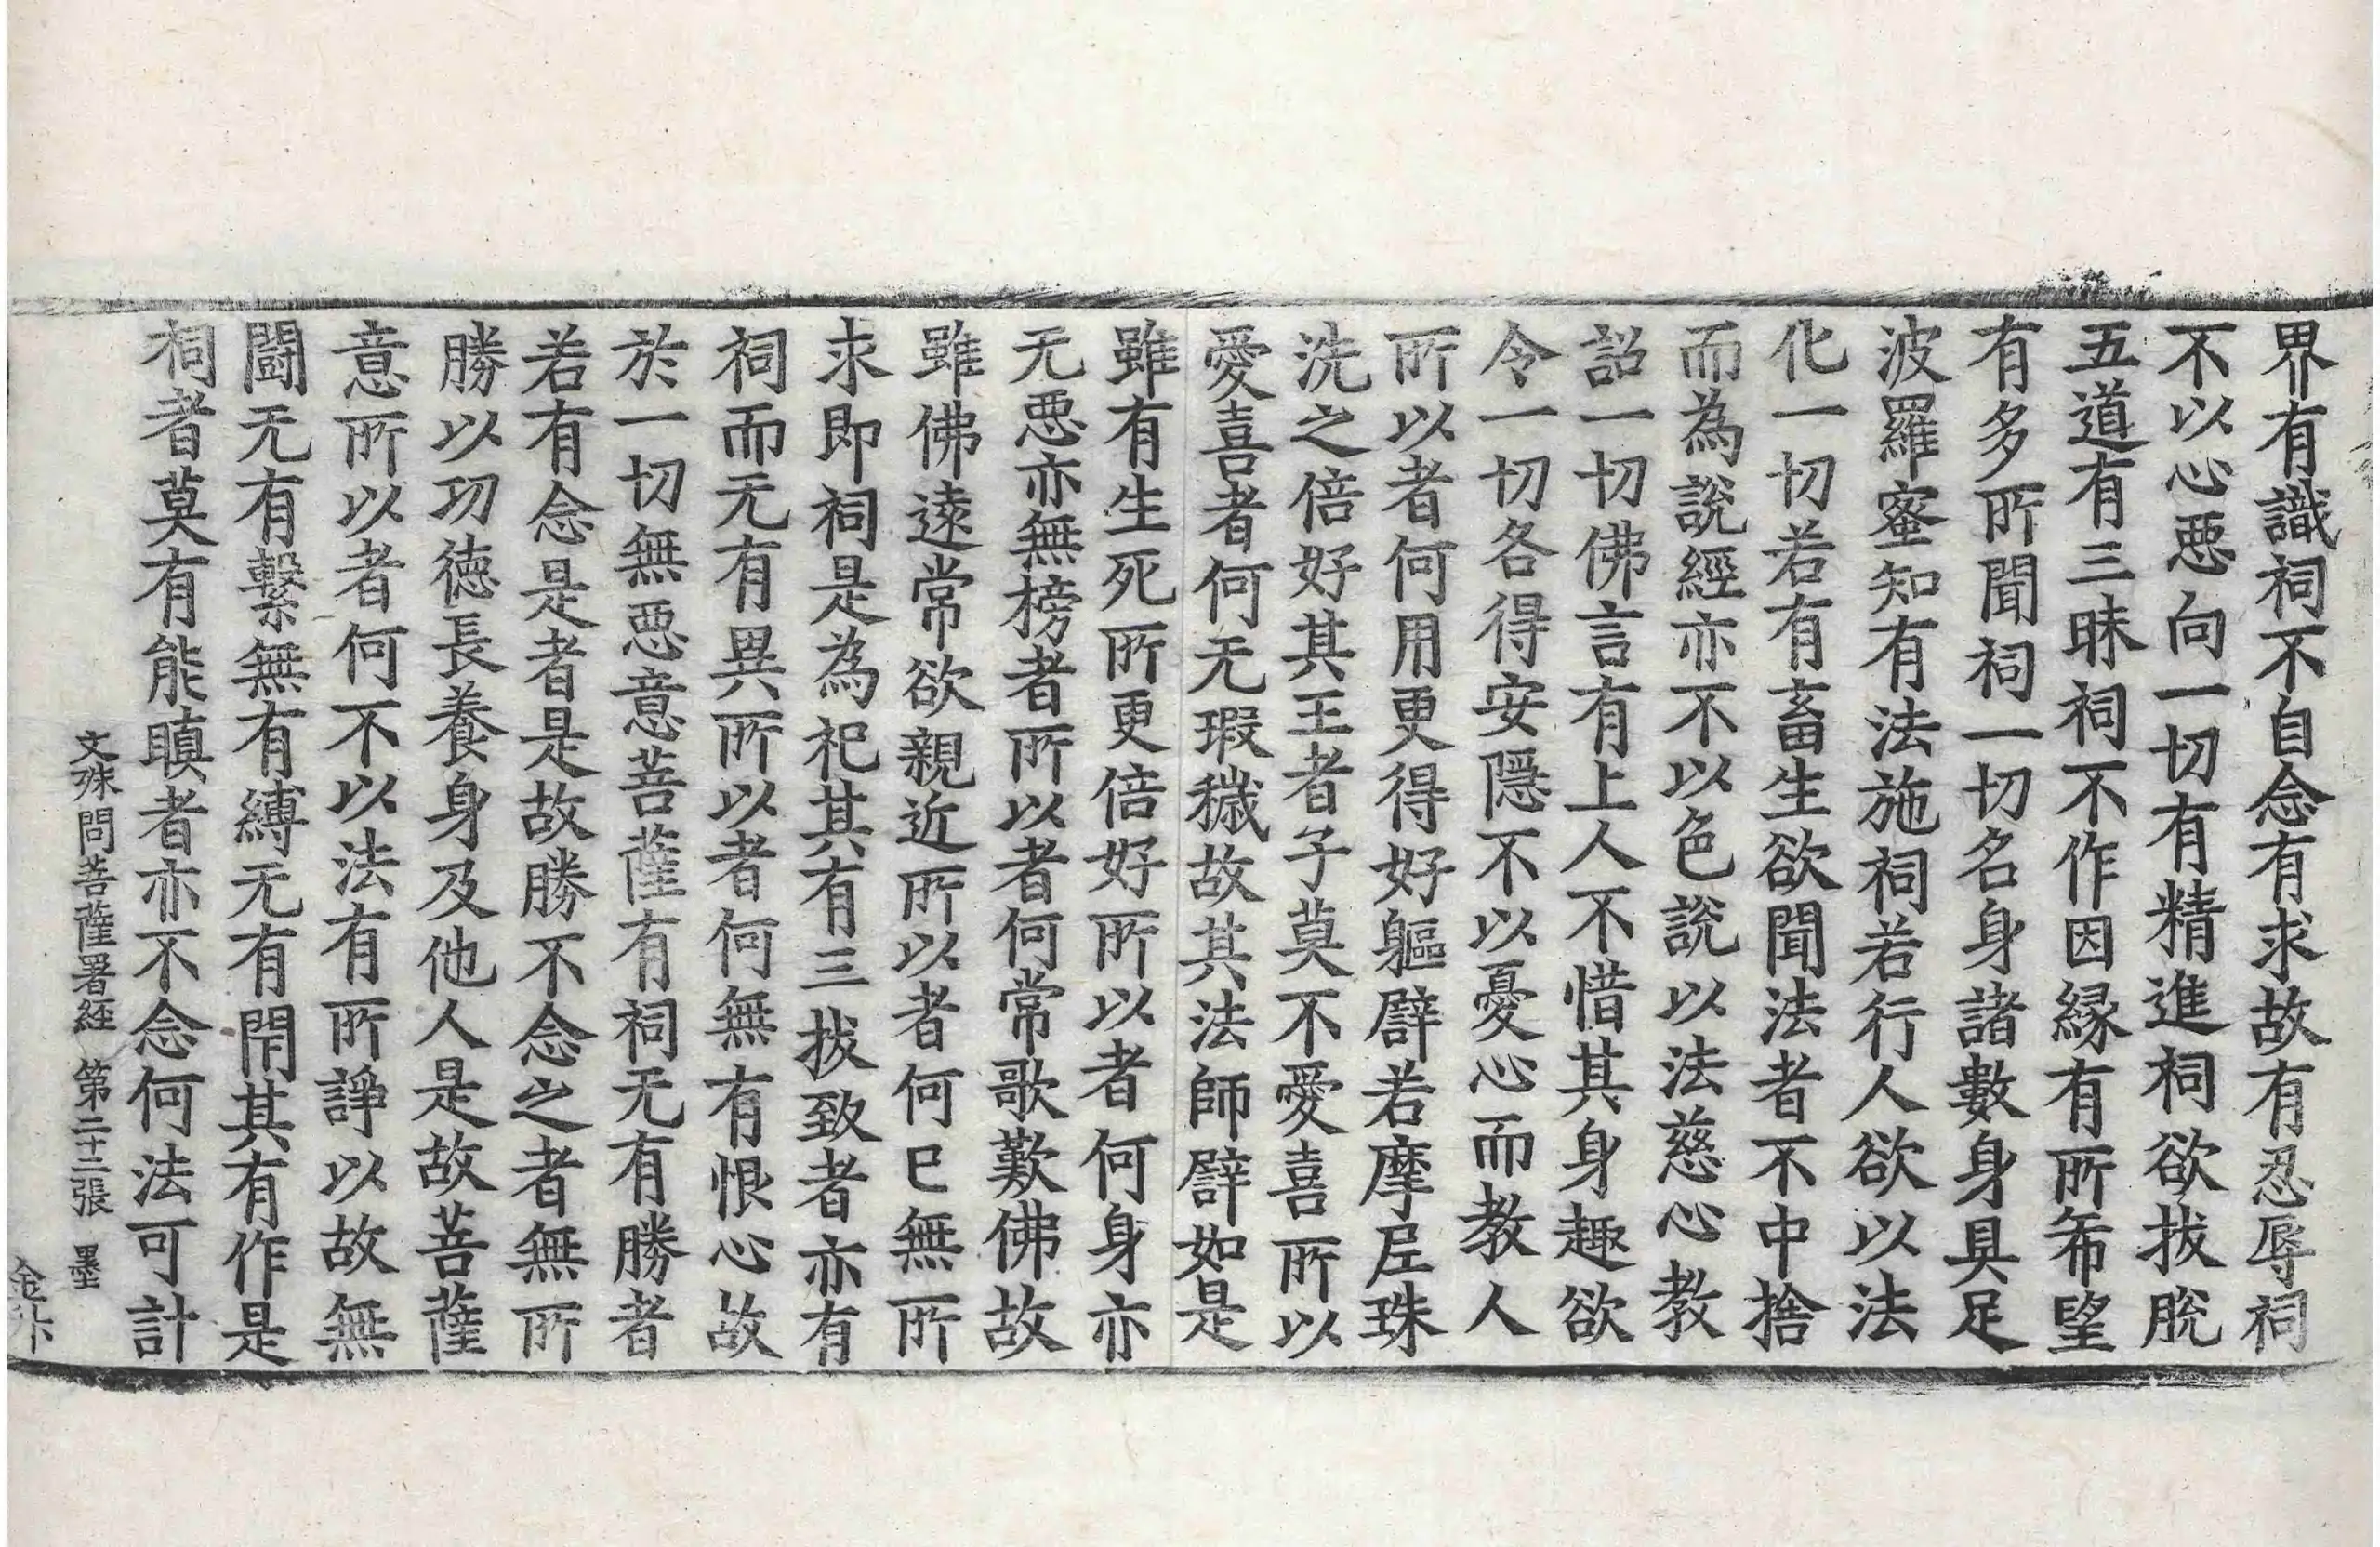 界有識祠不自念有求故有忍辱祠
不以心悪向一切有精進祠欲拔脫
五道有三昧祠不作因縁有所希望
有多所聞祠一切名身諸數身具足
波羅蜜知有法施祠若行人欲以法
化一切若有畜生欲聞法者不中捨
而為說經亦不以色說以法慈心教
詔一切佛言有上人不惜其身趣欲
令一切各得安隱不以憂心而教人
所以者何用更得好軀譬若摩尼珠
洗之倍好其王者子莫不愛喜所以
愛喜者何无瑕穢故其法師譬如是
雖有生死所更倍好所以者何身亦
无悪亦無榜者所以者何常歌歎佛故
雖佛遠常欲親近所以者何已無所
求即祠是為祀其有三拔致者亦有
祠而无有異所以者何無有恨心故
於一切無悪意菩薩有祠无有勝者
若有念是者是故勝不念之者無所
勝以功德長養身及他人是故菩薩
意所以者何不以法有所諍以故無
鬪无有繫無有縛无有閇其有作是
祠者莫有能瞋者亦不念何法可計
文殊問菩薩署經 第二十二張 墨